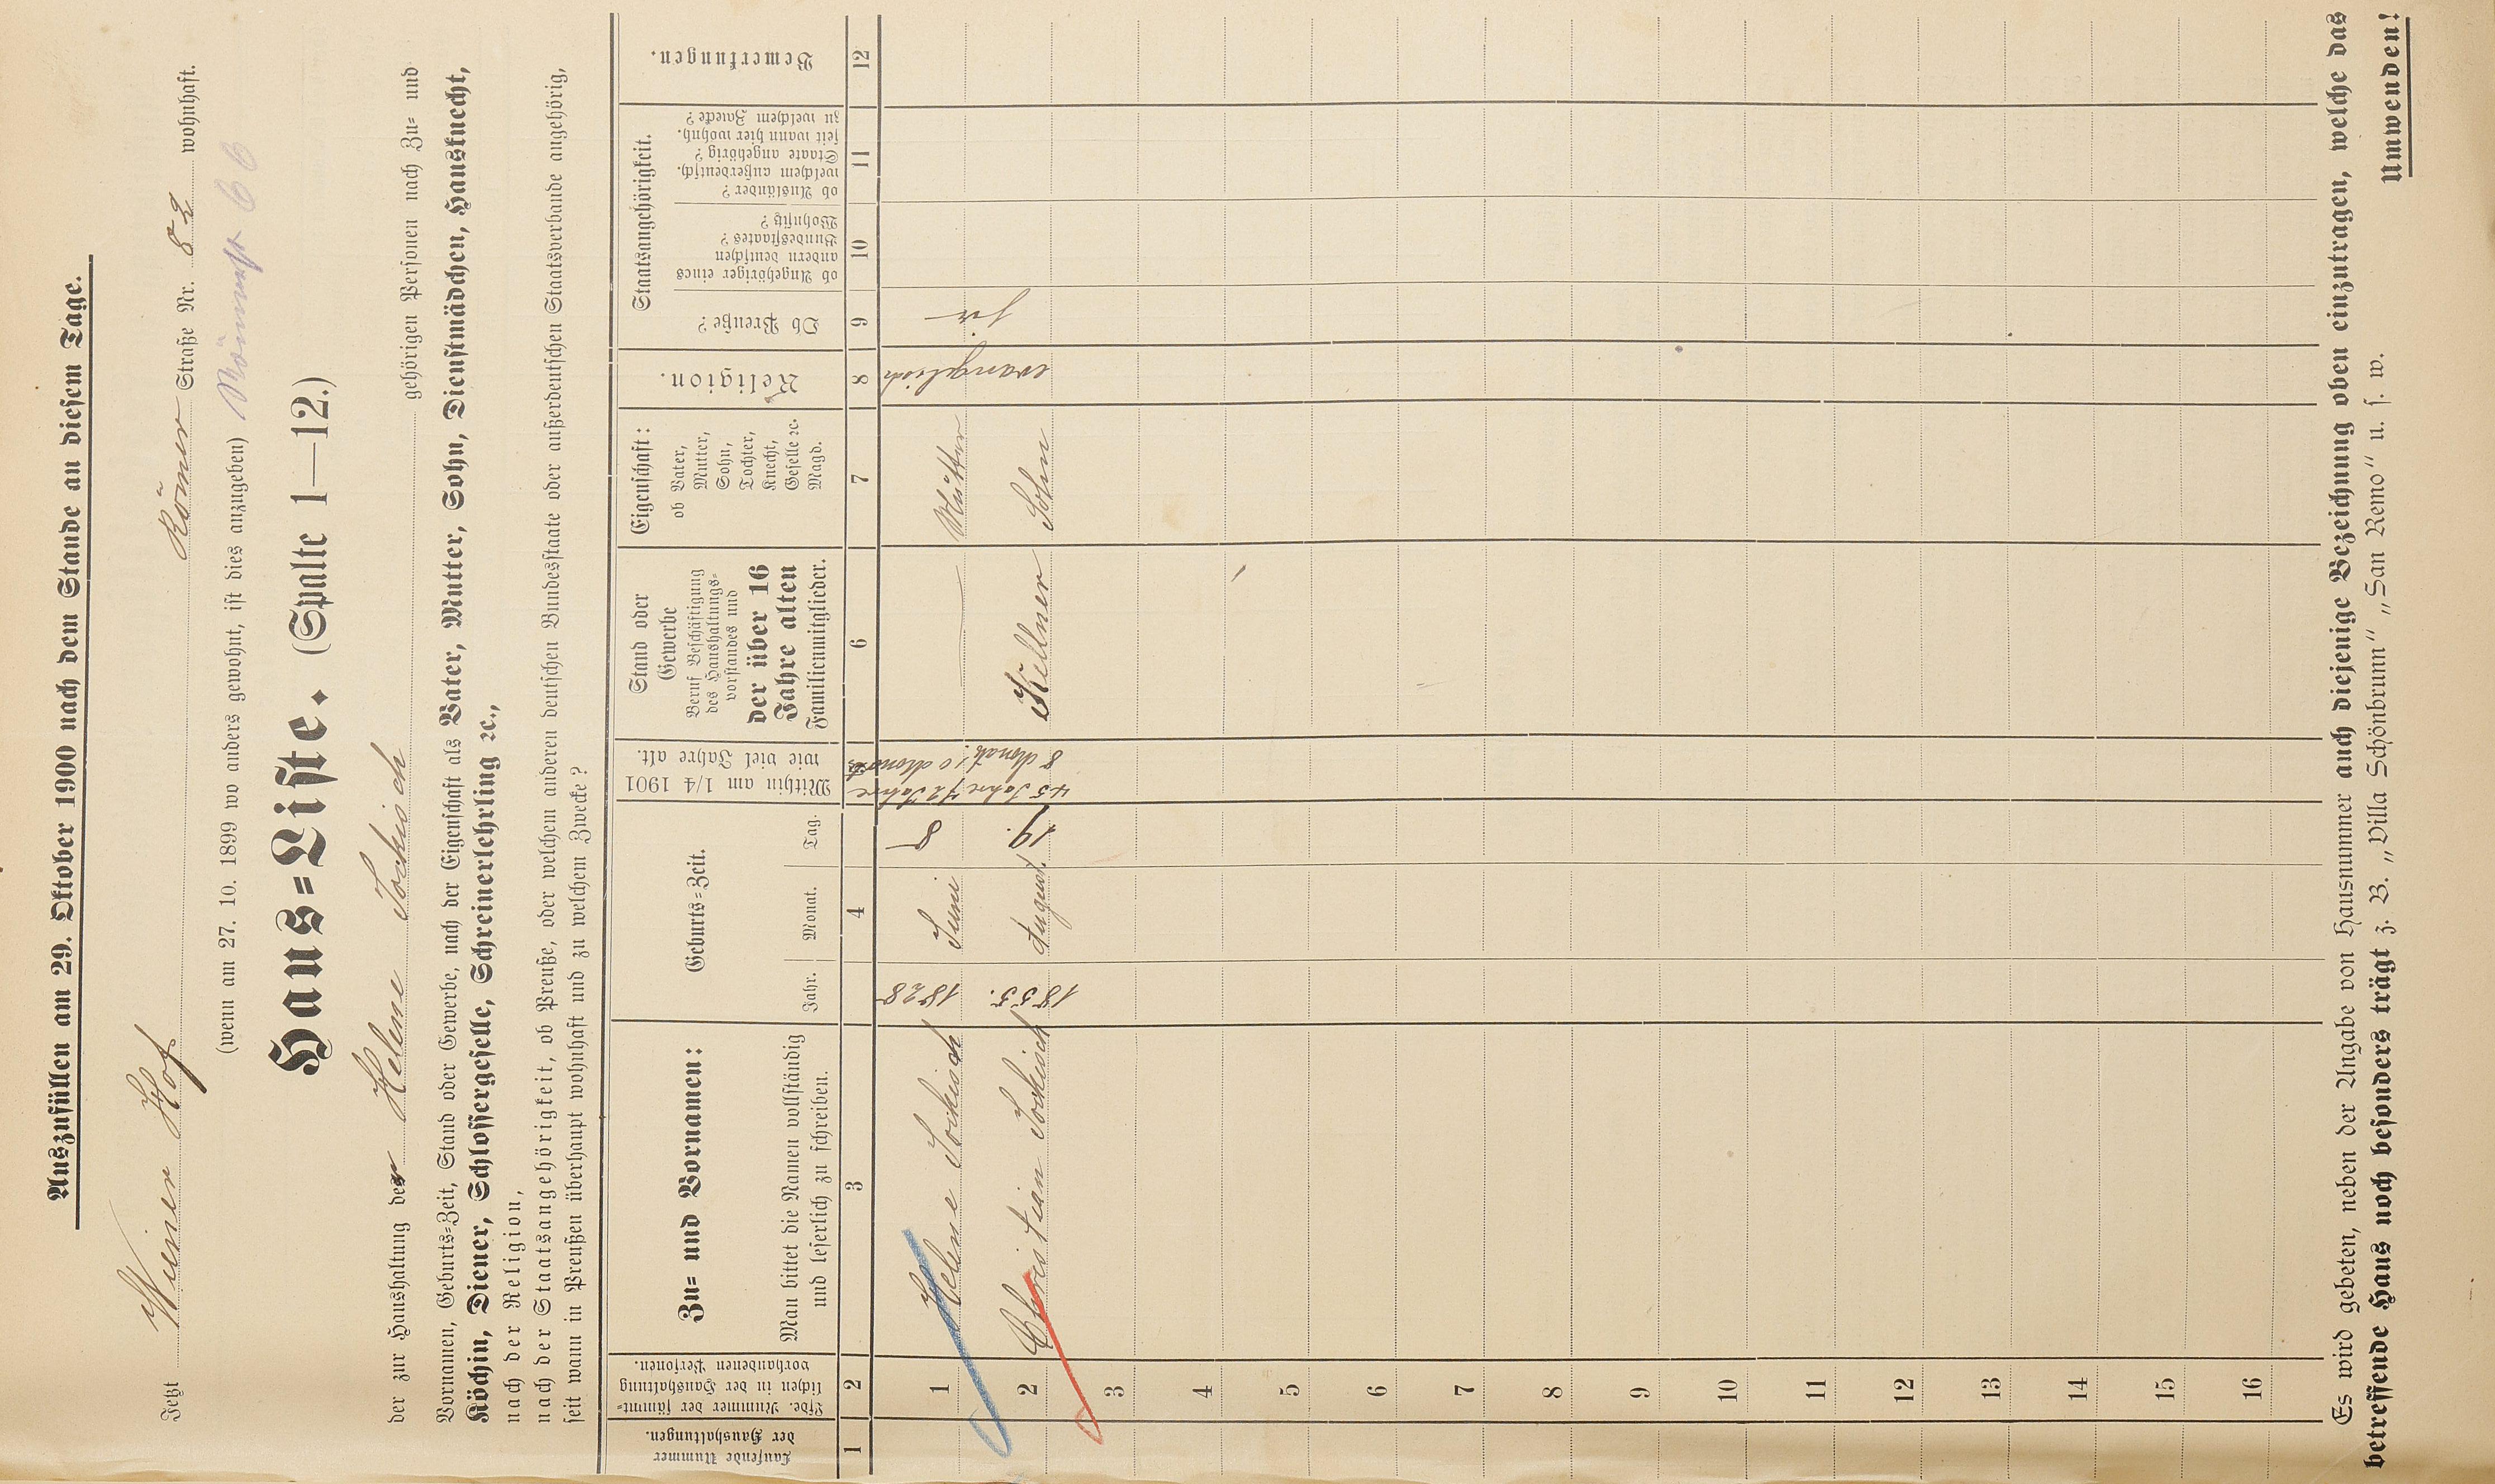 Auszufüllen am 29. Oktober 1900 nach dem Stande an diesem Tage.
Jetzt Wiener Hof Römer Straße Nr. 82 wohnhaft.
(wenn am 27. 10. 1899 wo anders gewohnt, ist dies anzugeben) 66
Haus=Liste. (Spalte 1—12.)
der zur Haushaltung der Helene Jockisch gehörigen Personen nach Zu= und
Vornamen, Geburts=Zeit, Stand oder Gewerbe, nach der Eigenschaft als Vater, Mutter, Sohn, Dienstmädchen, Hausknecht,
Köchin, Diener, Schlossergeselle, Schreinerlehrling ꝛc.,
nach der Religion,
nach der Staatsangehörigkeit, ob Preuße, oder welchem anderen deutschen Bundesstaate oder außerdeutschen Staatsverbande angehörig,
seit wann in Preußen überhaupt wohnhaft und zu welchem Zwecke?
Laufende Nummer
der Haushaltungen.
Lfde. Nummer der sämmt=
lichen in der Haushaltung
vorhandenen Personen.
Zu= und Vornamen:
Man bittet die Namen vollständig
und leserlich zu schreiben.
Geburts=Zeit.
Jahr. Monat. Tag.
Mithin am 1/4 1901
wie viel Jahre alt.
Stand oder
Gewerbe
Beruf Beschäftigung
des Haushaltungs=
vorstandes und
der über 16
Jahre alten
Familienmitglieder.
Eigenschaft:
ob Vater,
Mutter,
Sohn,
Tochter,
Knecht,
Geselle ꝛc.
Magd.
Religion.
Staatsangehörigkeit.
Ob Preuße?
ob Angehöriger eines
andern deutschen
Bundesstaates?
Wohnsitz?
ob Ausländer?
welchem außerdeutsch.
Staate angehörig?
seit wann hier wohnh.
zu welchem Zwecke?
Bemerkungen.
1 2 3 4 6 7 8 9 10 11 12
1 Helene Jockisch 1828 Juni 8 72 Jahre 10 Monate — Mutter evangelisch —
2 Christian Jockisch 1855. August. 19. 45 Jahre 8 Monat. Kellner Sohn evangelisch ja
3
4
5
6
7
8
9
10
11
12
13
14
15
16
Es wird gebeten, neben der Angabe von Hausnummer auch diejenige Bezeichnung oben einzutragen, welche das
betreffende Haus noch besonders trägt z. B. „Villa Schönbrunn" „San Remo" u. s. w.
Umwenden!